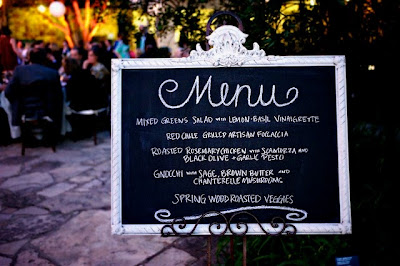 Menu
MIXED GREENS SALAD WITH LEMON-BASIL VINAIGRETTE
RED CHILE GRILLED ARTISAN FOCCACIA
ROASTED ROSEMARY CHICKEN WITH SCAMORZA AND
BLACK OLIVE + GARLIC PESTO
GNOCCHI WITH SAGE, BROWN BUTTER AND
CHANTERELLE MUSHROOMS
SPRING WOOD ROASTED VEGGIES